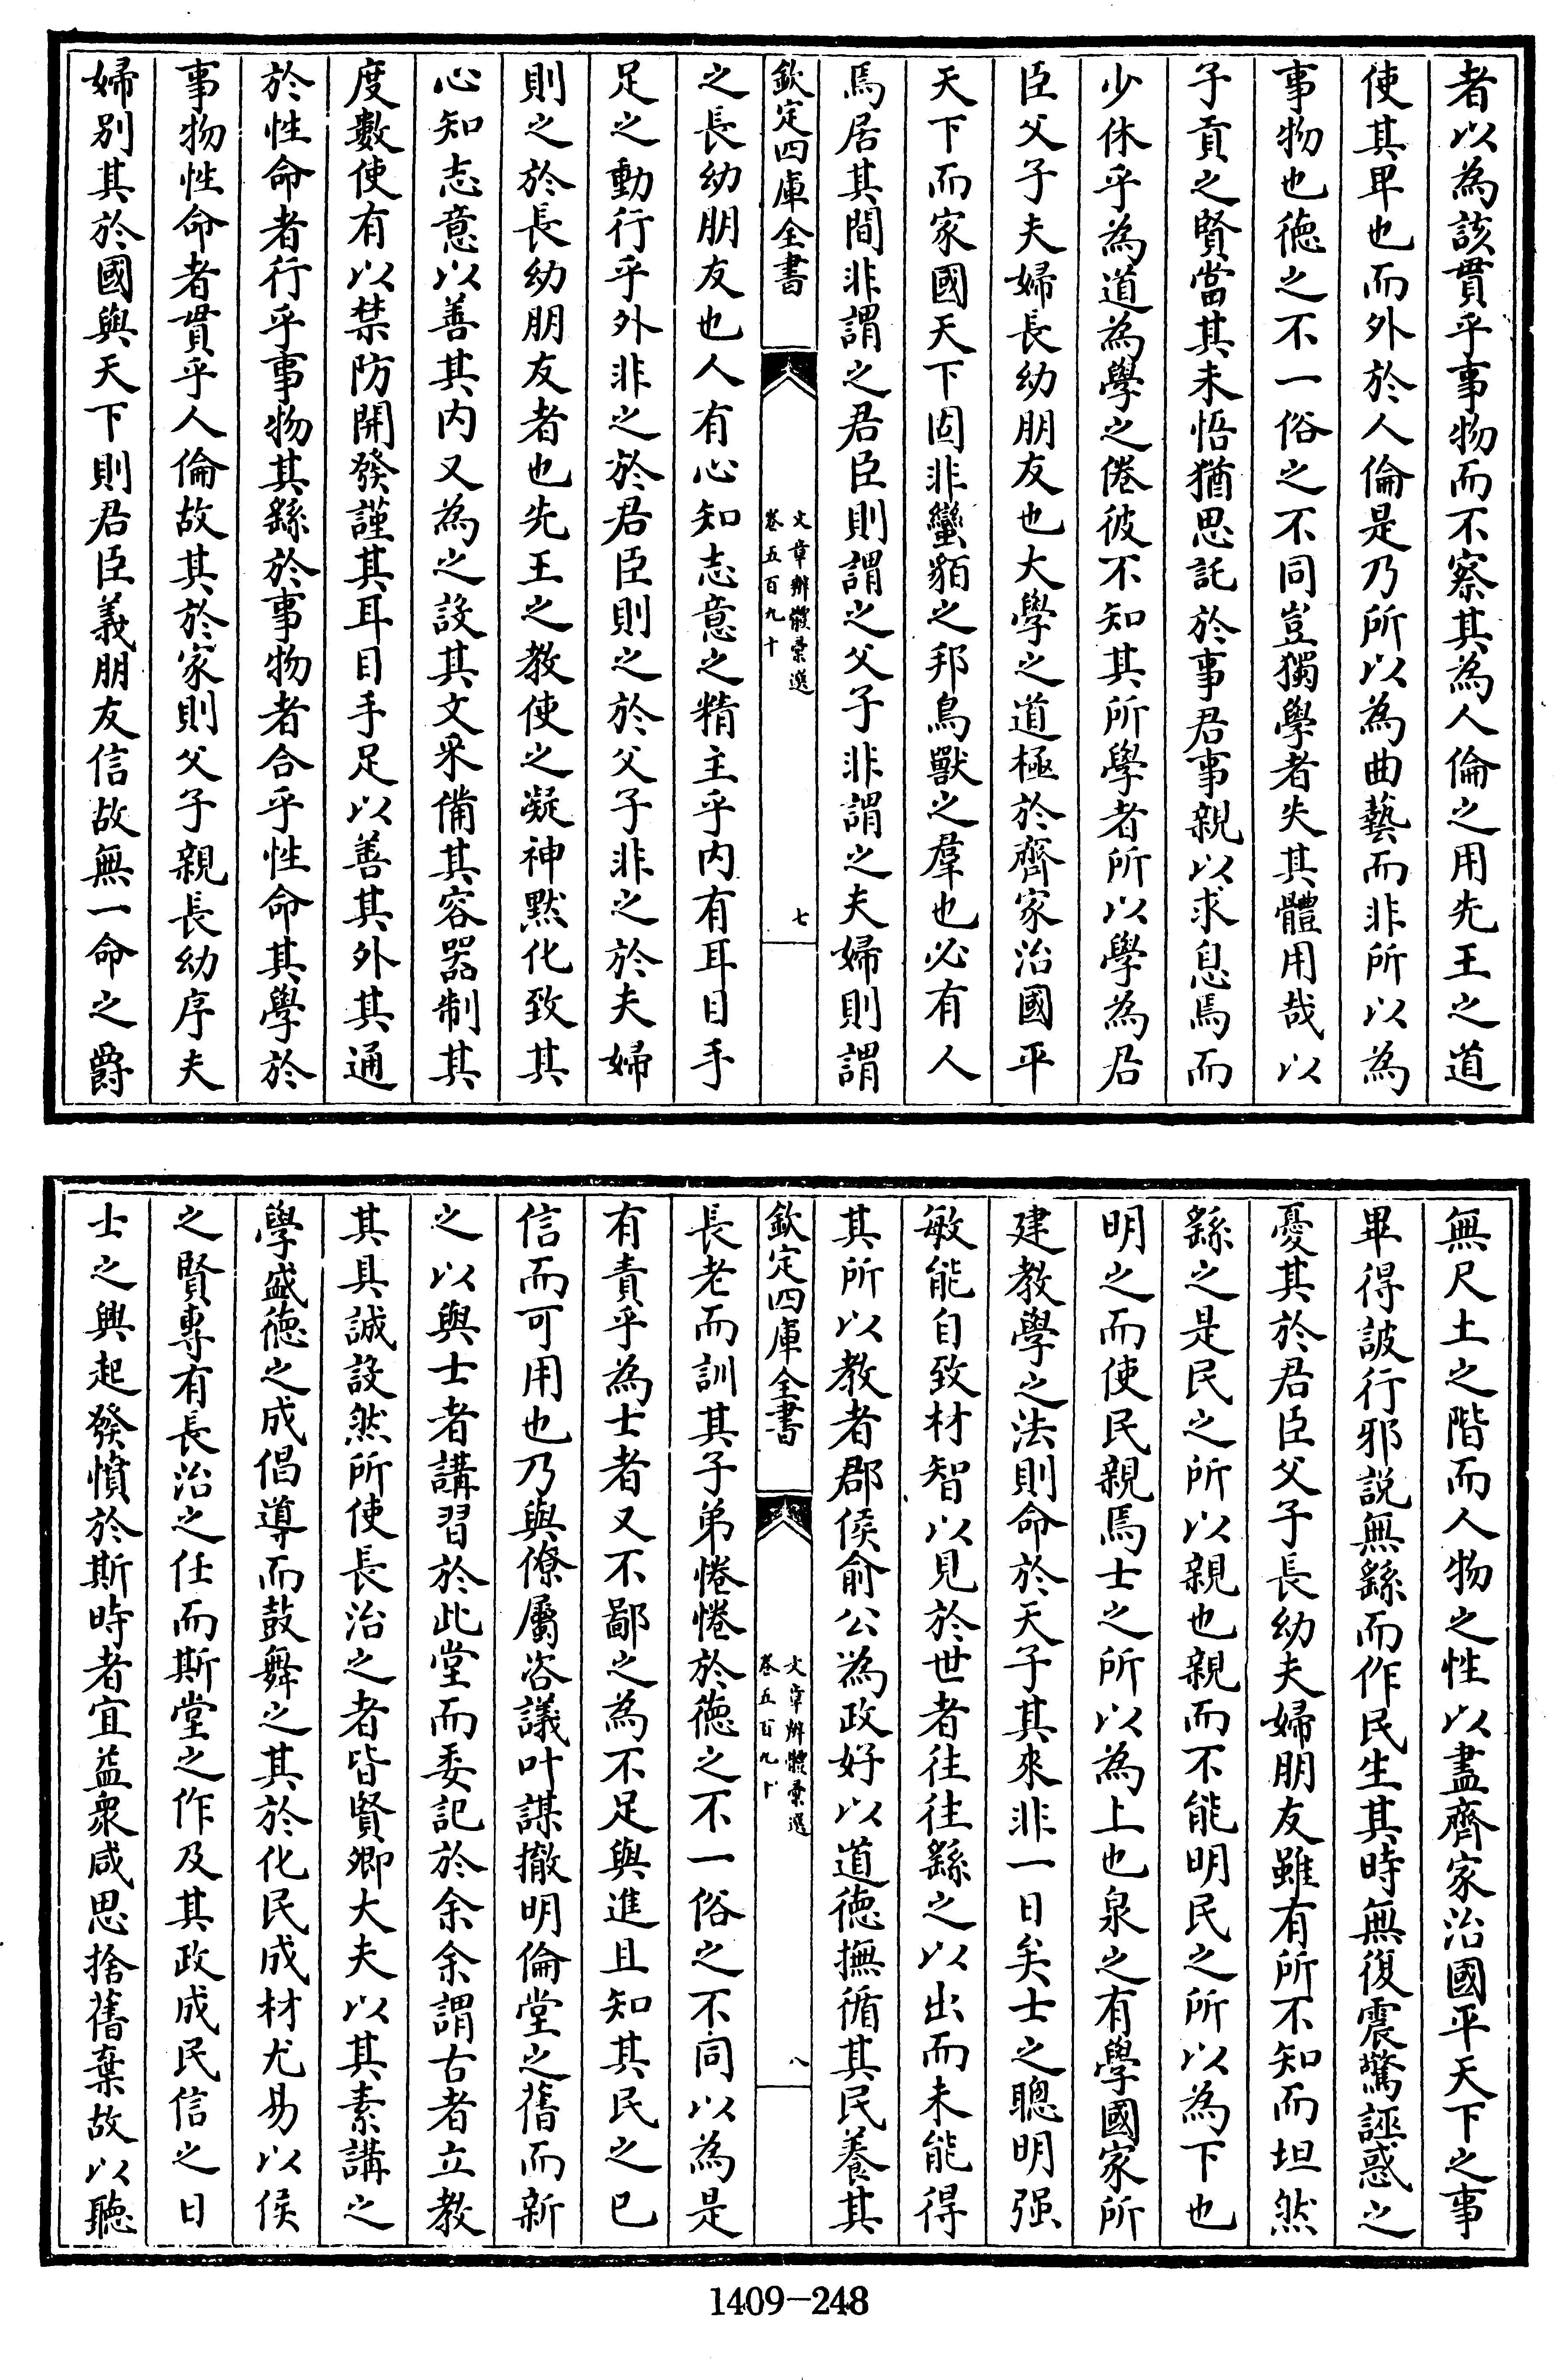 者以為該貫乎事物而不察其為人倫之用先王之道
使其卑也而外於人倫是乃所以為曲藝而非所以為
事物也德之不一俗之不同豈獨學者失其體用哉以
子貢之賢當其未悟猶思託於事君事親以求息焉而
少休乎為道為學之倦彼不知其所學者所以學為君
臣父子夫婦長幼朋友也大學之道極於齊家治國平
天下而家國天下固非蠻貊之邦鳥獸之羣也必有人
焉居其間非謂之君臣則謂之父子非謂之夫婦則謂
欽定四庫全書
文章辨體彚選
卷五百九十
七
之長幼朋友也人有心知志意之精主乎内有耳目手
足之動行乎外非之於君臣則之於父子非之於夫婦
則之於長幼朋友者也先王之教使之凝神默化致其
心知志意以善其内又為之設其文采備其容器制其
度數使有以禁防開發謹其耳目手足以善其外其通
於性命者行乎事物其繇於事物者合乎性命其學於
事物性命者貫乎人倫故其於家則父子親長幼序夫
婦别其於國與天下則君臣義朋友信故無一命之爵
無尺土之階而人物之性以盡齊家治國平天下之事
畢得詖行邪說無繇而作民生其時無復震驚誣惑之
憂其於君臣父子長幼夫婦朋友雖有所不知而坦然
繇之是民之所以親也親而不能明民之所以為下也
明之而使民親焉士之所以為上也泉之有學國家所
建教學之法則命於天子其來非一日矣士之聰明强
敏能自致材智以見於世者往往繇之以出而未能得
其所以教者郡侯俞公為政好以道德撫循其民養其
欽定四庫全書
文章辨體彚選
卷五百九十
八
長老而訓其子弟惓惓於德之不一俗之不同以為是
有責乎為士者又不鄙之為不足與進且知其民之已
信而可用也乃與僚屬咨議叶謀撤明倫堂之舊而新
之以與士者講習於此堂而委記於余余謂古者立教
其具誠設然所使長治之者皆賢卿大夫以其素講之
學盛德之成倡導而鼓舞之其於化民成材尤易以侯
之賢專有長治之任而斯堂之作及其政成民信之日
士之興起發憤於斯時者宜益衆咸思捨舊棄故以聽
1409-248